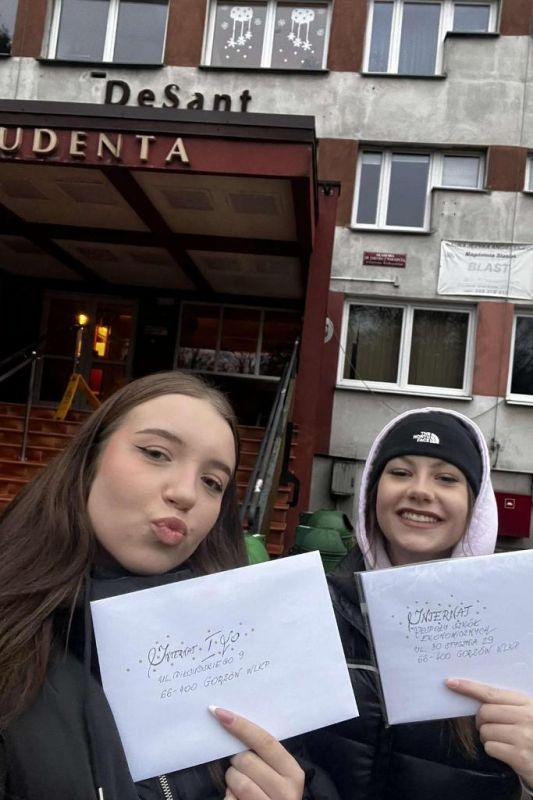 DeSant
UDENTA
Magdalena
BLAST
THE
NORTH
FACE
INTERNAT I LO
66-400 GORZÓW WLKP
INTERNAT
ZESPOŁU SZKÓŁ
EKONOMICZNYCH
UL. 30 STYCZNIA 29
66-400 GORZÓW WLKP